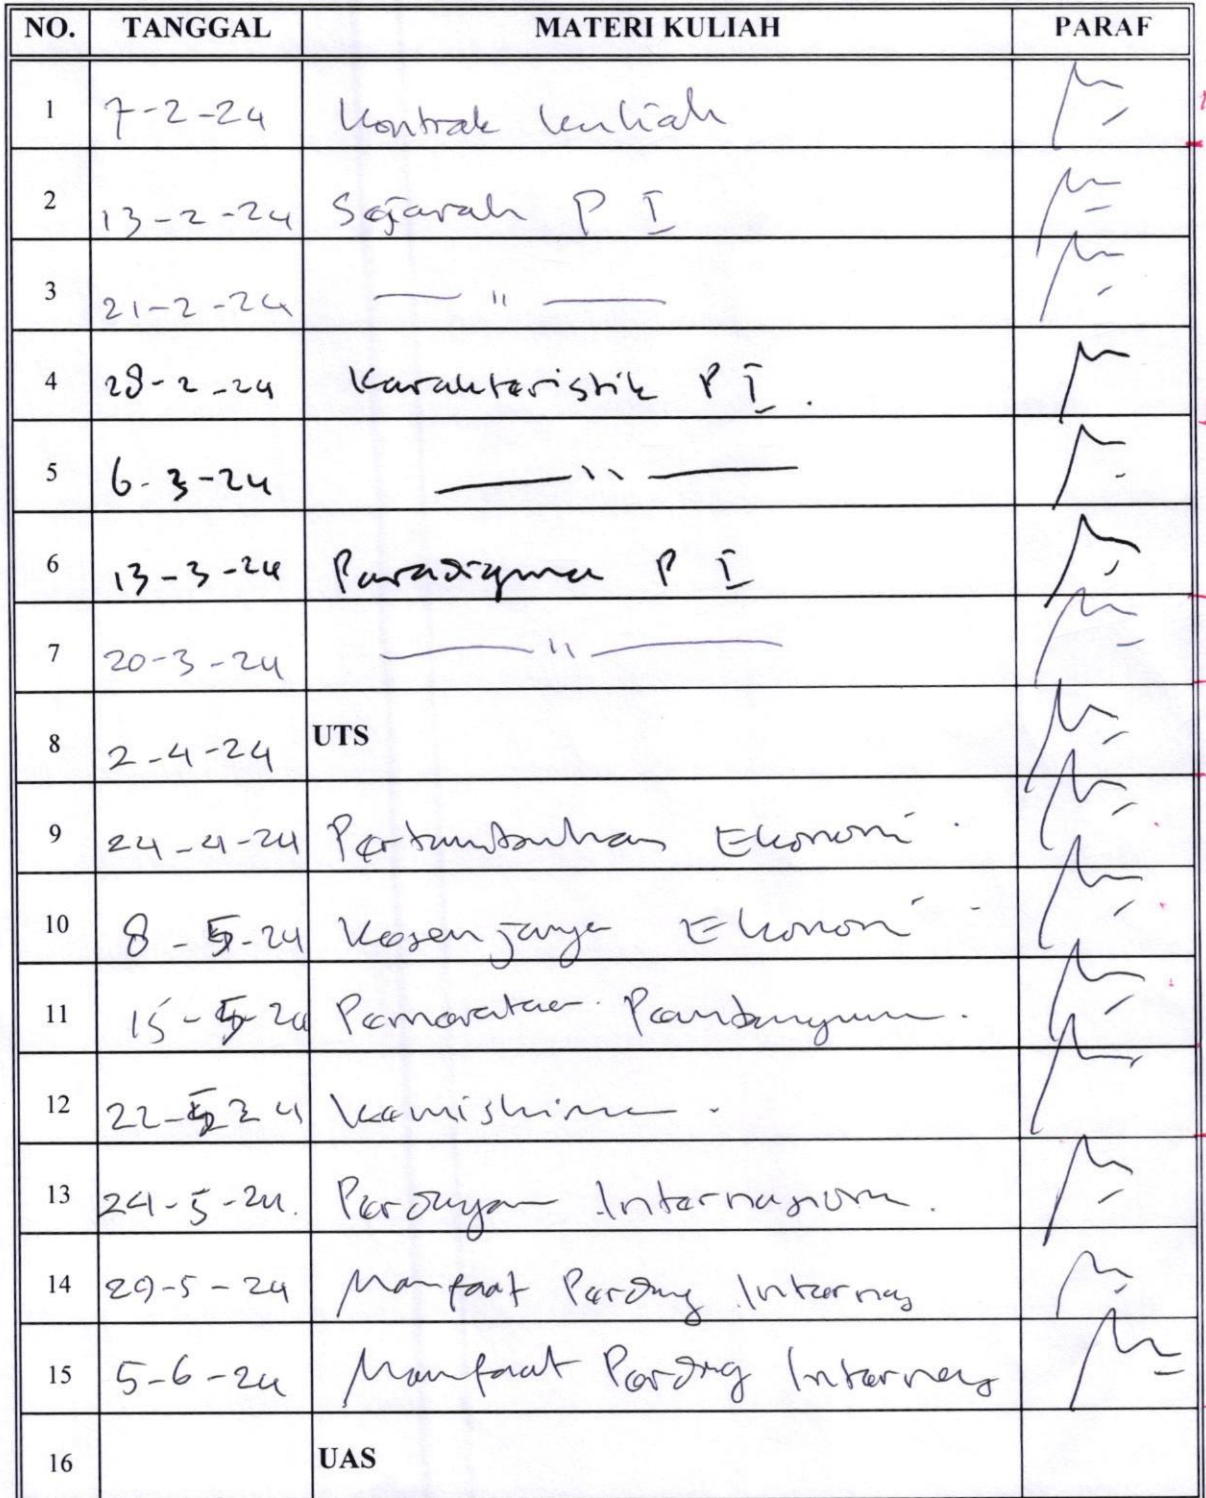 NO. TANGGAL MATERI KULIAH PARAF
1 7-2-24 Kontrak kuliah
2 13-2-24 Sejarah P I
3 21-2-24 — " —
4 28-2-24 Karakteristik P I.
5 6-3-24 — " —
6 13-3-24 Paradigma P I
7 20-3-24 — " —
8 2-4-24 UTS
9 24-4-24 Pertumbuhan Ekonomi
10 8-5-24 Kesenjangan Ekonomi
11 15-5-24 Pemerataan Pembangunan.
12 22-5-24 Kemiskinan.
13 24-5-24. Perdagangan Internasional.
14 29-5-24 Manfaat Perdag Internas
15 5-6-24 Manfaat Perdag Internas
16 UAS